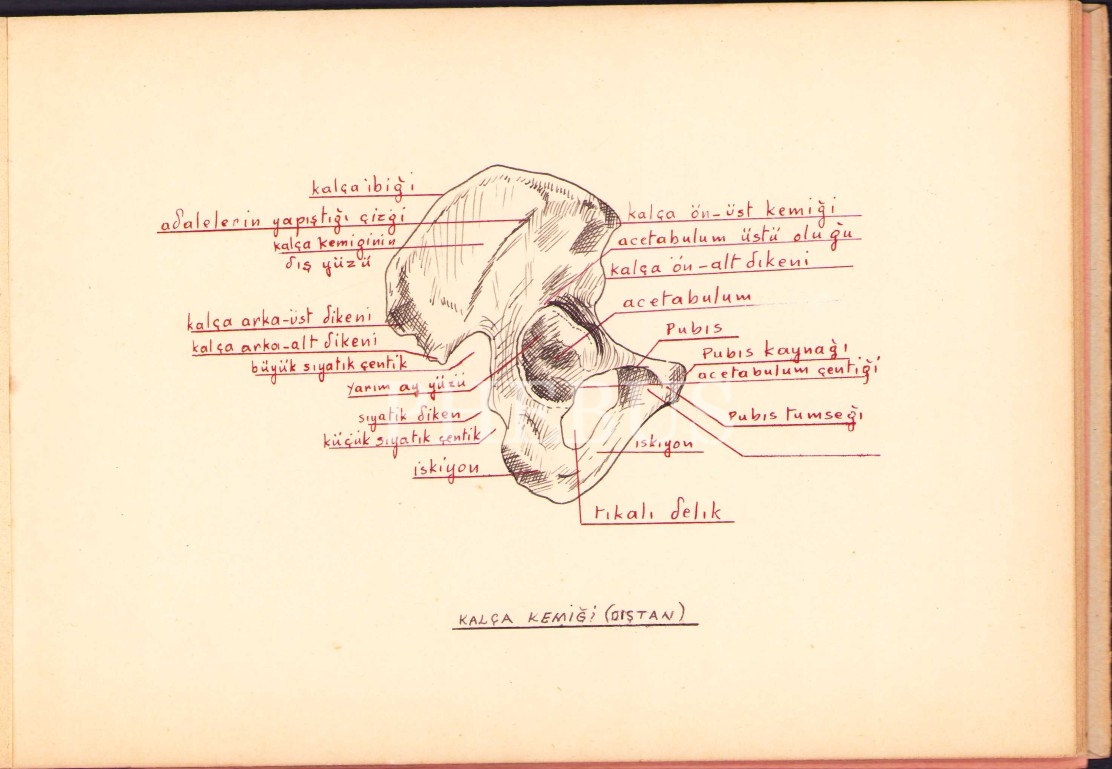 kalça ibiği
adalelerin yapıştığı çizgi
kalça kemiğinin
dış yüzü
kalça arka-üst dikeni
kalça arka-alt dikeni
büyük sıyatık çentik
yarım ay yüzü
sıyatik diken
küçük sıyatık çentik
iskiyon
kalça ön-üst kemiği
acetabulum üstü oluğu
kalça ön-alt dikeni
acetabulum
Pubıs
Pubıs kaynağı
acetabulum çentiği
Pubıs tumseği
ıskıyon
tıkalı delık
KALÇA KEMİĞİ (DIŞTAN)
PHEBUS